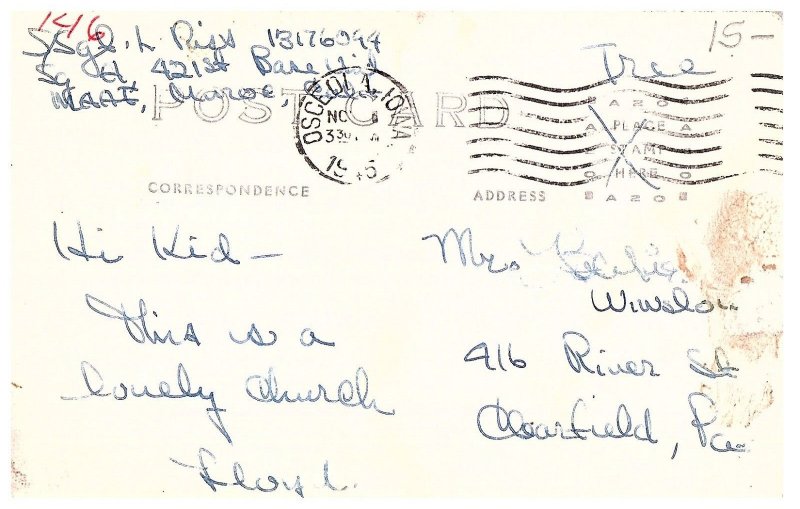 146
15-
S/Sgt. L. Riggs 13176094
Sq A, 421st Base Unit
MAAF, Muroc,
Free
POST CARD
OSCEOLA, IOWA
NO
330
1945
A Z O
PLACE
STAMP
HERE
A Z O
CORRESPONDENCE
ADDRESS
Hi Kid-
This is a
lovely Church
Lloyd L.
Mrs.
Winslow
416 River St
Clearfield, Pa